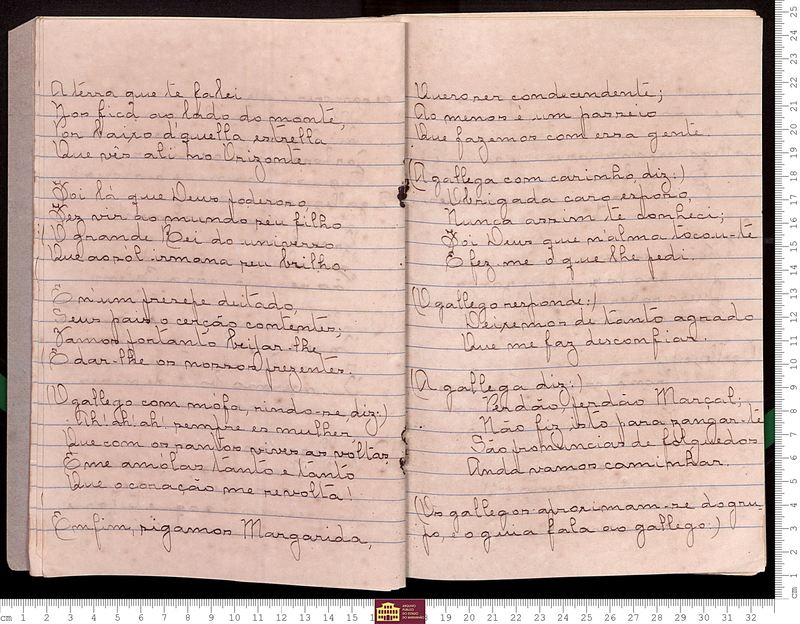 A terra que te falei
Nos fica ao lado do monte,
Por baixo d'quella estrella
Que vês ali no Orizonte.
Foi lá que Deus poderoso,
Fez vir ao mundo seu filho
O grande Rei do universo
Que ao sol irmana seu brilho.
E n'um presepe deitado,
Seus pais o cerção contentes;
Vamos portanto beijar-lhe
E dar-lhe os nossos prezentes.
(O gallego com mófa, rindo-se, diz:)
Ah! ah! ah, sempre es mulher
Que com os santos vives as voltas
E me amólas tanto e tanto
Que o coração me revolta!
Emfim, sigamos Margarida,
Quero ser condecendente;
Ao menos e um passeio
Que fazemos com essa gente.
(A gallega com carinho diz:)
Obrigada caro esposo,
Nunca assim te conheci;
Foi Deus que n'alma tocou-te
E fez-me o que lhe pedi.
(O gallego responde:)
Deixemos de tanto agrado
Que me faz desconfiar.
(A gallega diz:)
Perdão, perdão Marçal;
Não fiz isto para zangar-te
São pronuncias de folguedos
Anda vamos caminhar.
(Os gallegos aproximam-se do gru-
po, e o guia fala ao gallego:)
cm 1 2 3 4 5 6 7 8 9 10 11 12 13 14 15 18 19 20 21 22 23 24 25 26 27 28 29 30 31 32
cm 1 2 3 4 5 6 7 8 9 10 11 12 13 14 15 16 17 18 19 20 21 22 23 24 25
ARQUIVO
PÚBLICO
DO ESTADO
DO MARANHÃO